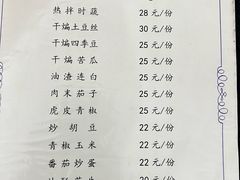 热拌时蔬 28 元/份
干煸土豆丝 30 元/份
干煸四季豆 25 元/份
干煸苦瓜 25 元/份
油渣莲白 25 元/份
肉末茄子 25 元/份
虎皮青椒 25 元/份
炒胡豆 22 元/份
青椒玉米 22 元/份
番茄炒蛋 22 元/份
20 元/份